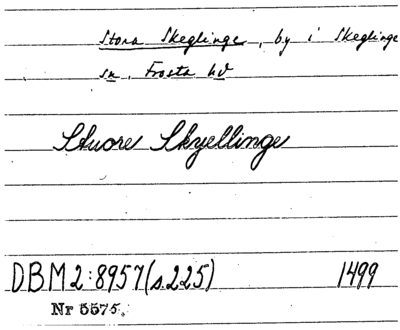 Stora Skeglinge, by i Skeglinge
sn, Frosta hd
Stuore Skyellinge
DBM2:8957(s.225) 1499
Nr 5575.